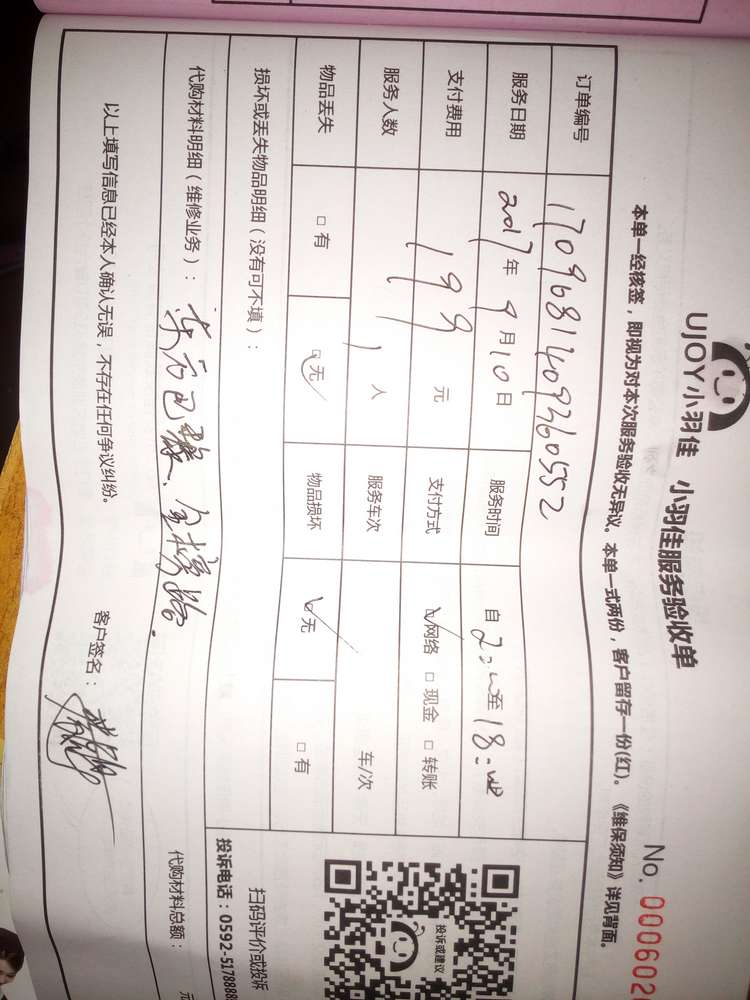 UJOY小羽佳 小羽佳服务验收单
No. 0006020
本单一经核签，即视为对本次服务验收无异议。本单一式两份，客户留存一份(红)。《维保须知》详见背面。
订单编号 1709681409360552
服务日期 2017年9月10日 服务时间 自 至18:
支付费用 199元 支付方式 ☑网络 □现金 □转账
服务人数 1人 服务车次 车/次
物品丢失 □有 ☑无 物品损坏 ☑无 □有
损坏或丢失物品明细（没有可不填）：
代购材料明细（维修业务）：东方巴黎、金榜路.
代购材料总额： 元
以上填写信息已经本人确认无误，不存在任何争议纠纷。 客户签名：
投诉或建议
扫码评价或投诉
投诉电话：0592-5178888